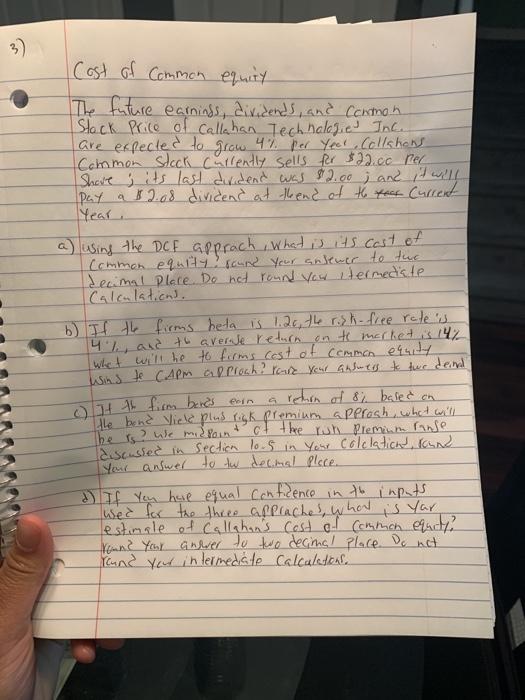 3)
Cost of Common equity
The future earnings, dividends, and Common
Stock Price of Callahan Technologies Inc.
are expected to grow 4% per year. Callahans
Common Stock Currently sells for $22.00 Per
Share; its last dividend was $2.00; and it will
Pay a $2.08 dividend at the end of the Current
Year.
a) using the DCF apprach, what is its cost of
Common equity? round your answer to two
decimal place. Do not round your itermediate
Calculations.
b) If the firms beta is 1.20, the risk-free rate is
4%, and the average return on the market is 14%
what will be the firms cost of common equity
using the CAPM approach? your answers to two
c) If the firm bonds earn a return of 8%, based on
the bond yield plus risk premium approsh, what will
be rs? use midpoint of the risk premium range
discussed in section 10-5 in your round
Your answer to two decimal place.
d) If you have equal Confidence in the inputs
used for the three approaches, what is your
estimate of Callahan's Cost of Common equity?
round your answer to two decimal place. Do not
round your intermediate Calculations.